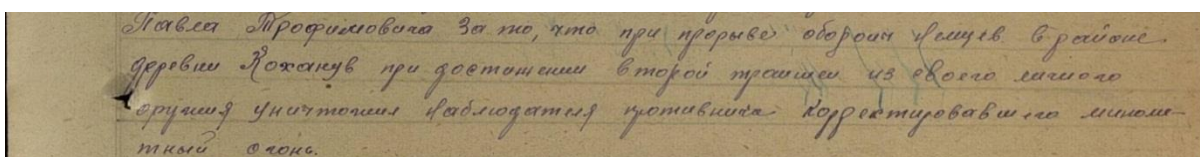 Павла Трофимовича за то, что при прорыве оборон немцев в районе
деревни Коханув при достижении второй траншеи из своего личного
оружия уничтожил наблюдателя противника корректировавшего миноме-
тный огонь.